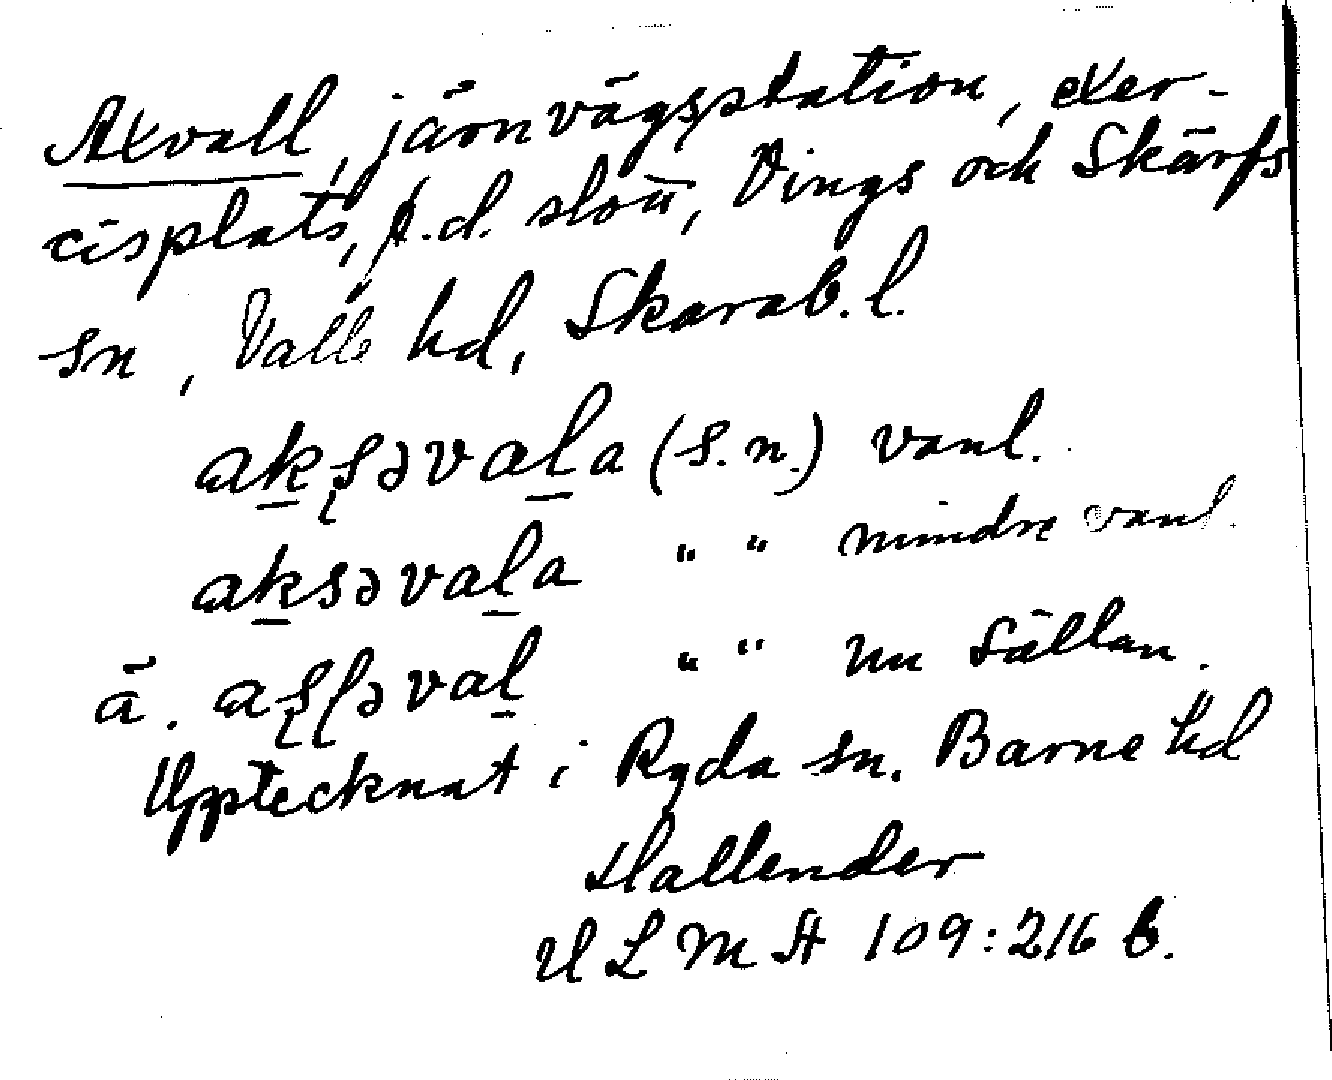 Axvall, järnvägsstation, exer-
cisplats, f.d. slott, Vings och Skärfs
sn, Valle hd, Skarab.l.
aksəvala (s.n.) vanl.
aksəvala " " mindre vanl.
ä. assəval " " nu sällan.
Upptecknat i Ryda sn. Barne hd
Hallender
ULMA 109:216 b.